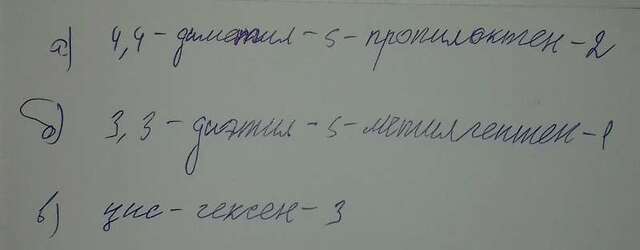 а) 4,4-диметил-5-пропилоктен-2
б) 3,3-диэтил-5-метилгептен-1
в) цис-гексен-3